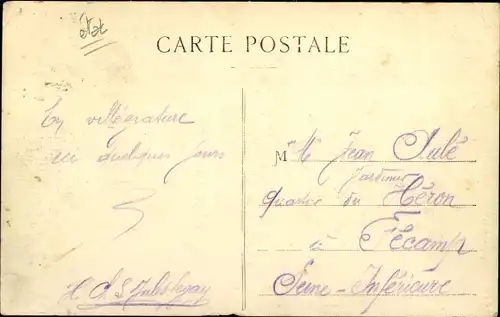 état
CARTE POSTALE
En villégiature
ici quelques jours
M Mr Jean Aulé
Jardinier
Quartier du Héron
à Fécamp
Seine-Inférieure